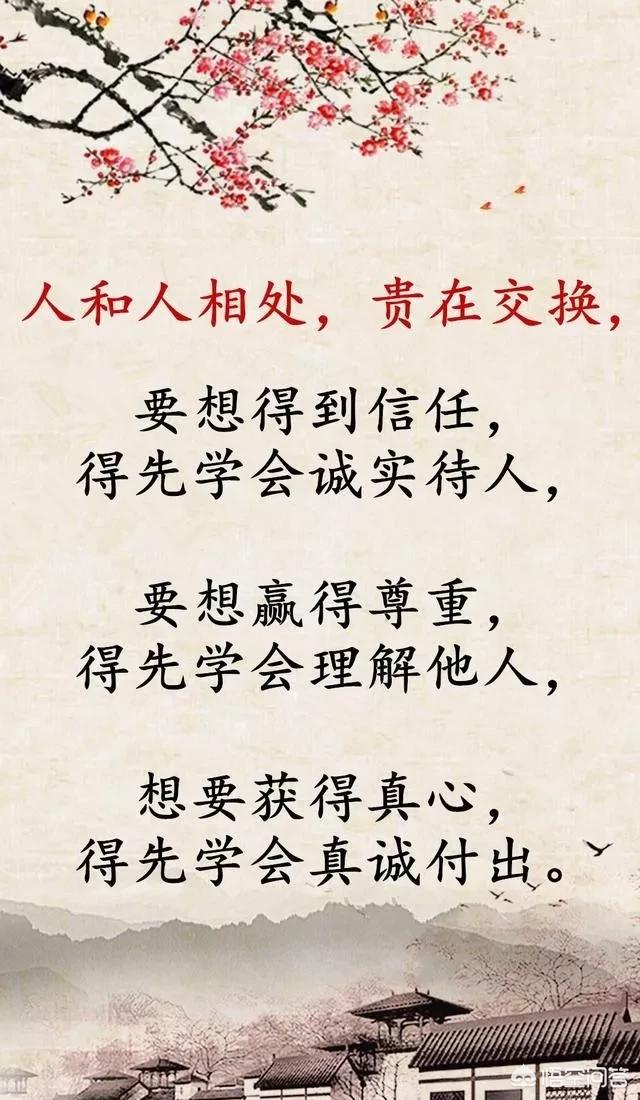 人和人相处，贵在交换，
要想得到信任，
得先学会诚实待人，
要想赢得尊重，
得先学会理解他人，
想要获得真心，
得先学会真诚付出。
悟空问答